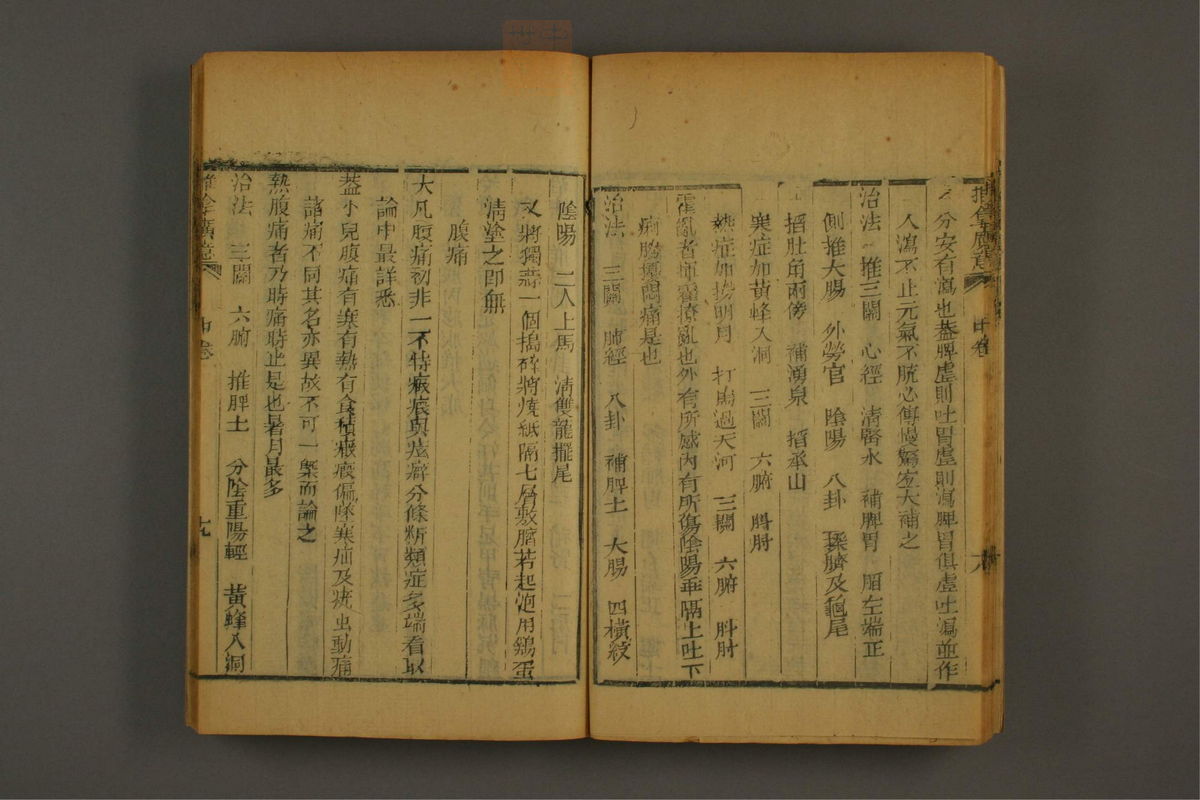 推拿廣意 中卷
又分安有瀉也蓋脾虛則吐胃虛則瀉脾胃俱虛吐瀉並作
久瀉不止元氣不脫必傳慢驚宜大補之
治法 推三關 心經 清腎水 補脾胃 掐左端正
側推大腸 外勞宮 陰陽 八卦 揉臍及龜尾
掐肚角兩傍 補湧泉 掐承山
寒症加黃蜂入洞 三關 六腑 㪺肘
熱症加撈明月 打馬過天河 三關 六腑 㪺肘
霍亂者揮霍撩亂也外有所感內有所傷陰陽乖隔上吐下
痢腸㽲悶痛是也
治法 三關 肺經 八卦 補脾土 大腸 四橫紋
陰陽 二人上馬 清雙龍擺尾
又將獨蒜一個搗碎將燒紙隔七層敷臍若起泡用鷄蛋
清塗之即無
腹痛
大凡腹痛初非一不特癥瘕與痃癖分條析類症多端看取
論中最詳悉
蓋小兒腹痛有寒有熱有食積癥瘕偏墜寒疝及蚘虫動痛
諸痛不同其名亦異故不可一槩而論之
熱腹痛者乃時痛時止是也暑月最多
治法 三關 六腑 推脾土 分陰重陽輕 黃蜂入洞
推拿廣意 中卷